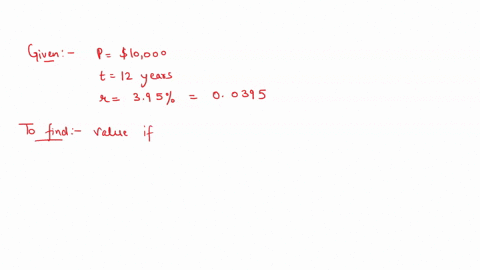 Given:- P = $10,000
t = 12 years
r = 3.95% = 0.0395
To find:- value if